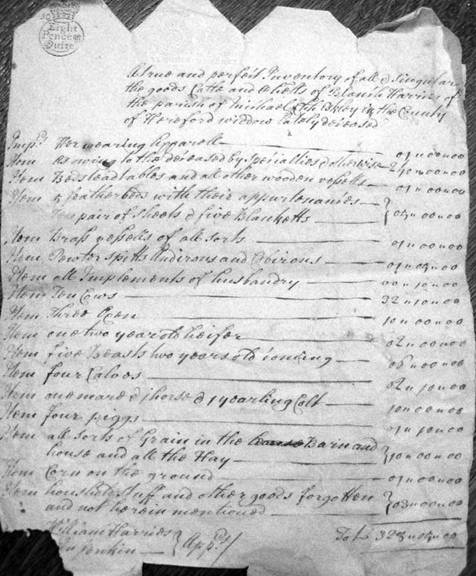 Eight
Pence pr
Quire
A true and perfect Inventory of all & Singular
the goods Catte and Chells of Blanch Harries of
the parish of michael in the County
of Hereford widdow lately deceased
Imps. Her wearing Apparell — 01 " 00 " 00
Item owing to the deceased by Specialties & otherwise
Item Bedsteads tables and all other wooden vessells — 01 " 00 " 00
Item featherbeds with their appurtenances
Ten pair of Sheets & five Blanketts } 05 " 00 " 00
Item Brass vessells of all sorts — 01 " 00 " 00
Item Pewter spitts Andirons and
Item all Implements of husbandry — 00 " 10 " 00
Item Ten Cows — 32 " 10 " 00
Item Three Oxen
Item one two year old heifer — 02 " 00 " 00
Item five Beasts two years old — 06 " 00 " 00
Item four Calves — 02 " 10 " 00
Item one mare & 1 horse & 1 yearling Colt — 10 " 00 " 00
Item four piggs — 01 " 10 " 00
Item all sorts of Grain in the Barn and
house and all the Hay } 10 " 00 " 00
Item Corn on the ground — 01 " 00 " 00
Item houshold stuff and other goods forgotten
and not herein mentioned } 03 " 00 " 00
William Harries
Jenkin } App:rs
Tot